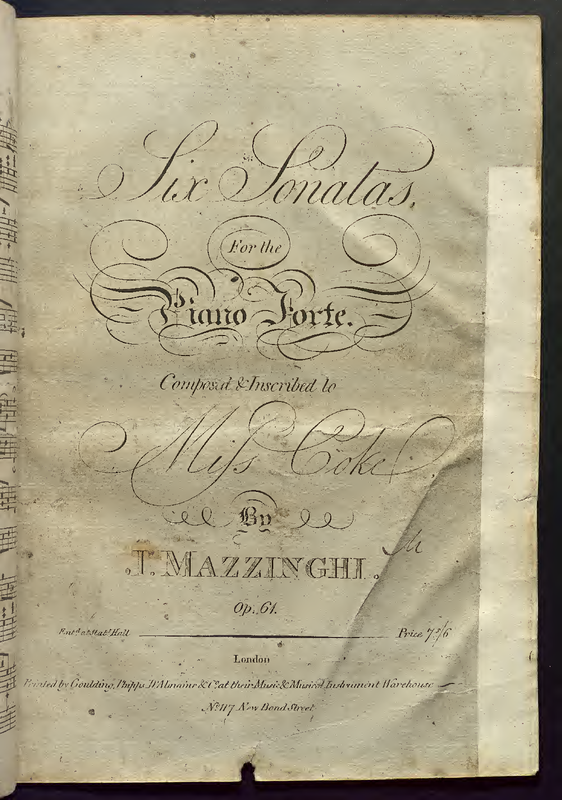 Six Sonatas,
For the
Piano Forte.
Compos'd & Inscribed to
Miſs Coke
By
J. MAZZINGHI.
Op. 61.
Ent.d at Stat.s Hall
Price 7s/6
London
Printed by Goulding, Phipps, D'Almaine & Co. at their Music & Musical Instrument Warehouse
No. 117 New Bond Street